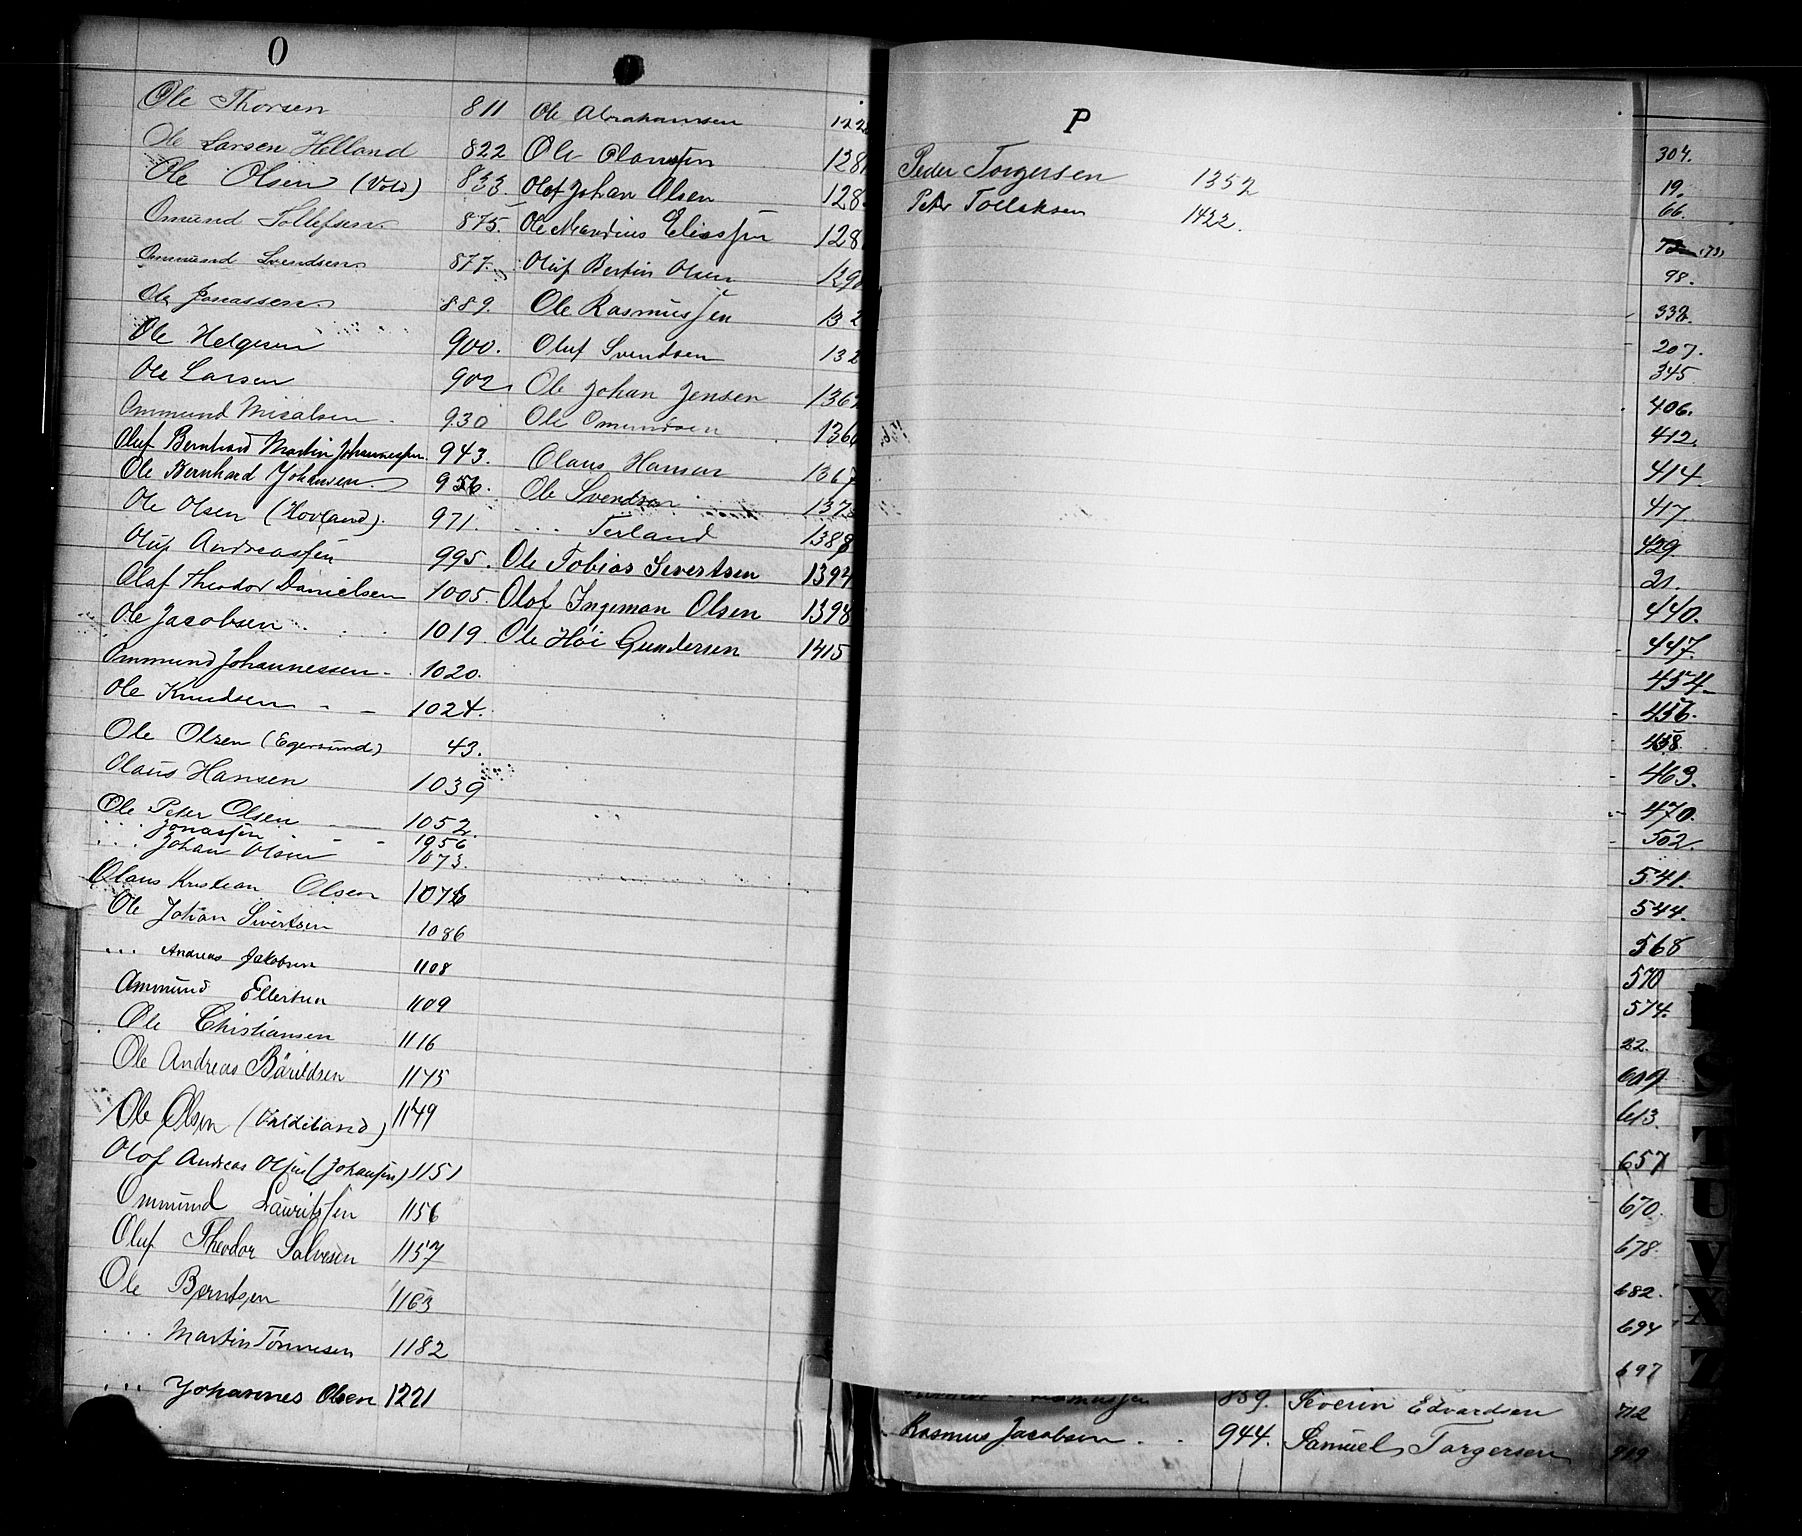 O
Ole Thorsen 811
Ole Larsen Helland 822
Ole Olsen (Vold) 833.
Omund Tollefsen 875.
Ommund Svendsen 877.
Ole Jonassen 889.
Ole Helgesen 900.
Ole Larsen 902
Ommund Misalsen 930
Oluf Bernhard Martin Johannessen 943.
Ole Bernhard Johansen 956.
Ole Olsen (Hovland). 971.
Oluf Andreassen 995.
Olaf Theodor Danielsen 1005.
Ole Jacobsen 1019.
Ommund Johannessen 1020.
Ole Knudsen 1024.
Ole Olsen (Egersund) 43.
Olaus Hansen 1039
Ole Peter Olsen 1052.
... Jonassen 1056
... Johan Olsen 1073.
Olaus Kristian Olsen 1076
Ole Johan Sivertsen 1086
... Andreas Jakobsen 1108
Ommund Ellertsen 1109
Ole Christiansen 1116
Ole Andreas Bårildsen 1145
Ole Olsen 1149
Olof Andreas Olsen (Johansen) 1151
Ommund Lauritssen 1156
Oluf Theodor Salvesen 1157
Ole Berntsen 1163
... Martin Tønnesen 1182
... Johannes Olsen 1221
Ole Abrahamsen 122
Ole Olaussen 128
Olof Johan Olsen 128
Ole Mandius Eliassen 128
Oluf Bertin Olsen 129
Ole Rasmussen 132
Oluf Svendsen 132
Ole Johan Jensen 136
Ole Omundsen 136
Olaus Hansen 1367
Ole Svendsen 137
... Terland 1388
Ole Tobias Sivertsen 1394
Olof Ingeman Olsen 1398
Ole Höi Gundersen 1415
P
Peder Torgersen 1352
Peter Tollaksen 1422.
304.
19.
66.
72 (73)
98.
332.
207.
345
406.
412.
414.
417.
429.
21.
440.
447.
454
456.
458
463.
470.
502.
541.
544.
568
570
574.
22.
609
613.
657
670.
678.
682.
694
697
712
S
T
U
V
X
Z
859. Severin Edvardsen
Rasmus Jacobsen 944. Samuel Torgersen